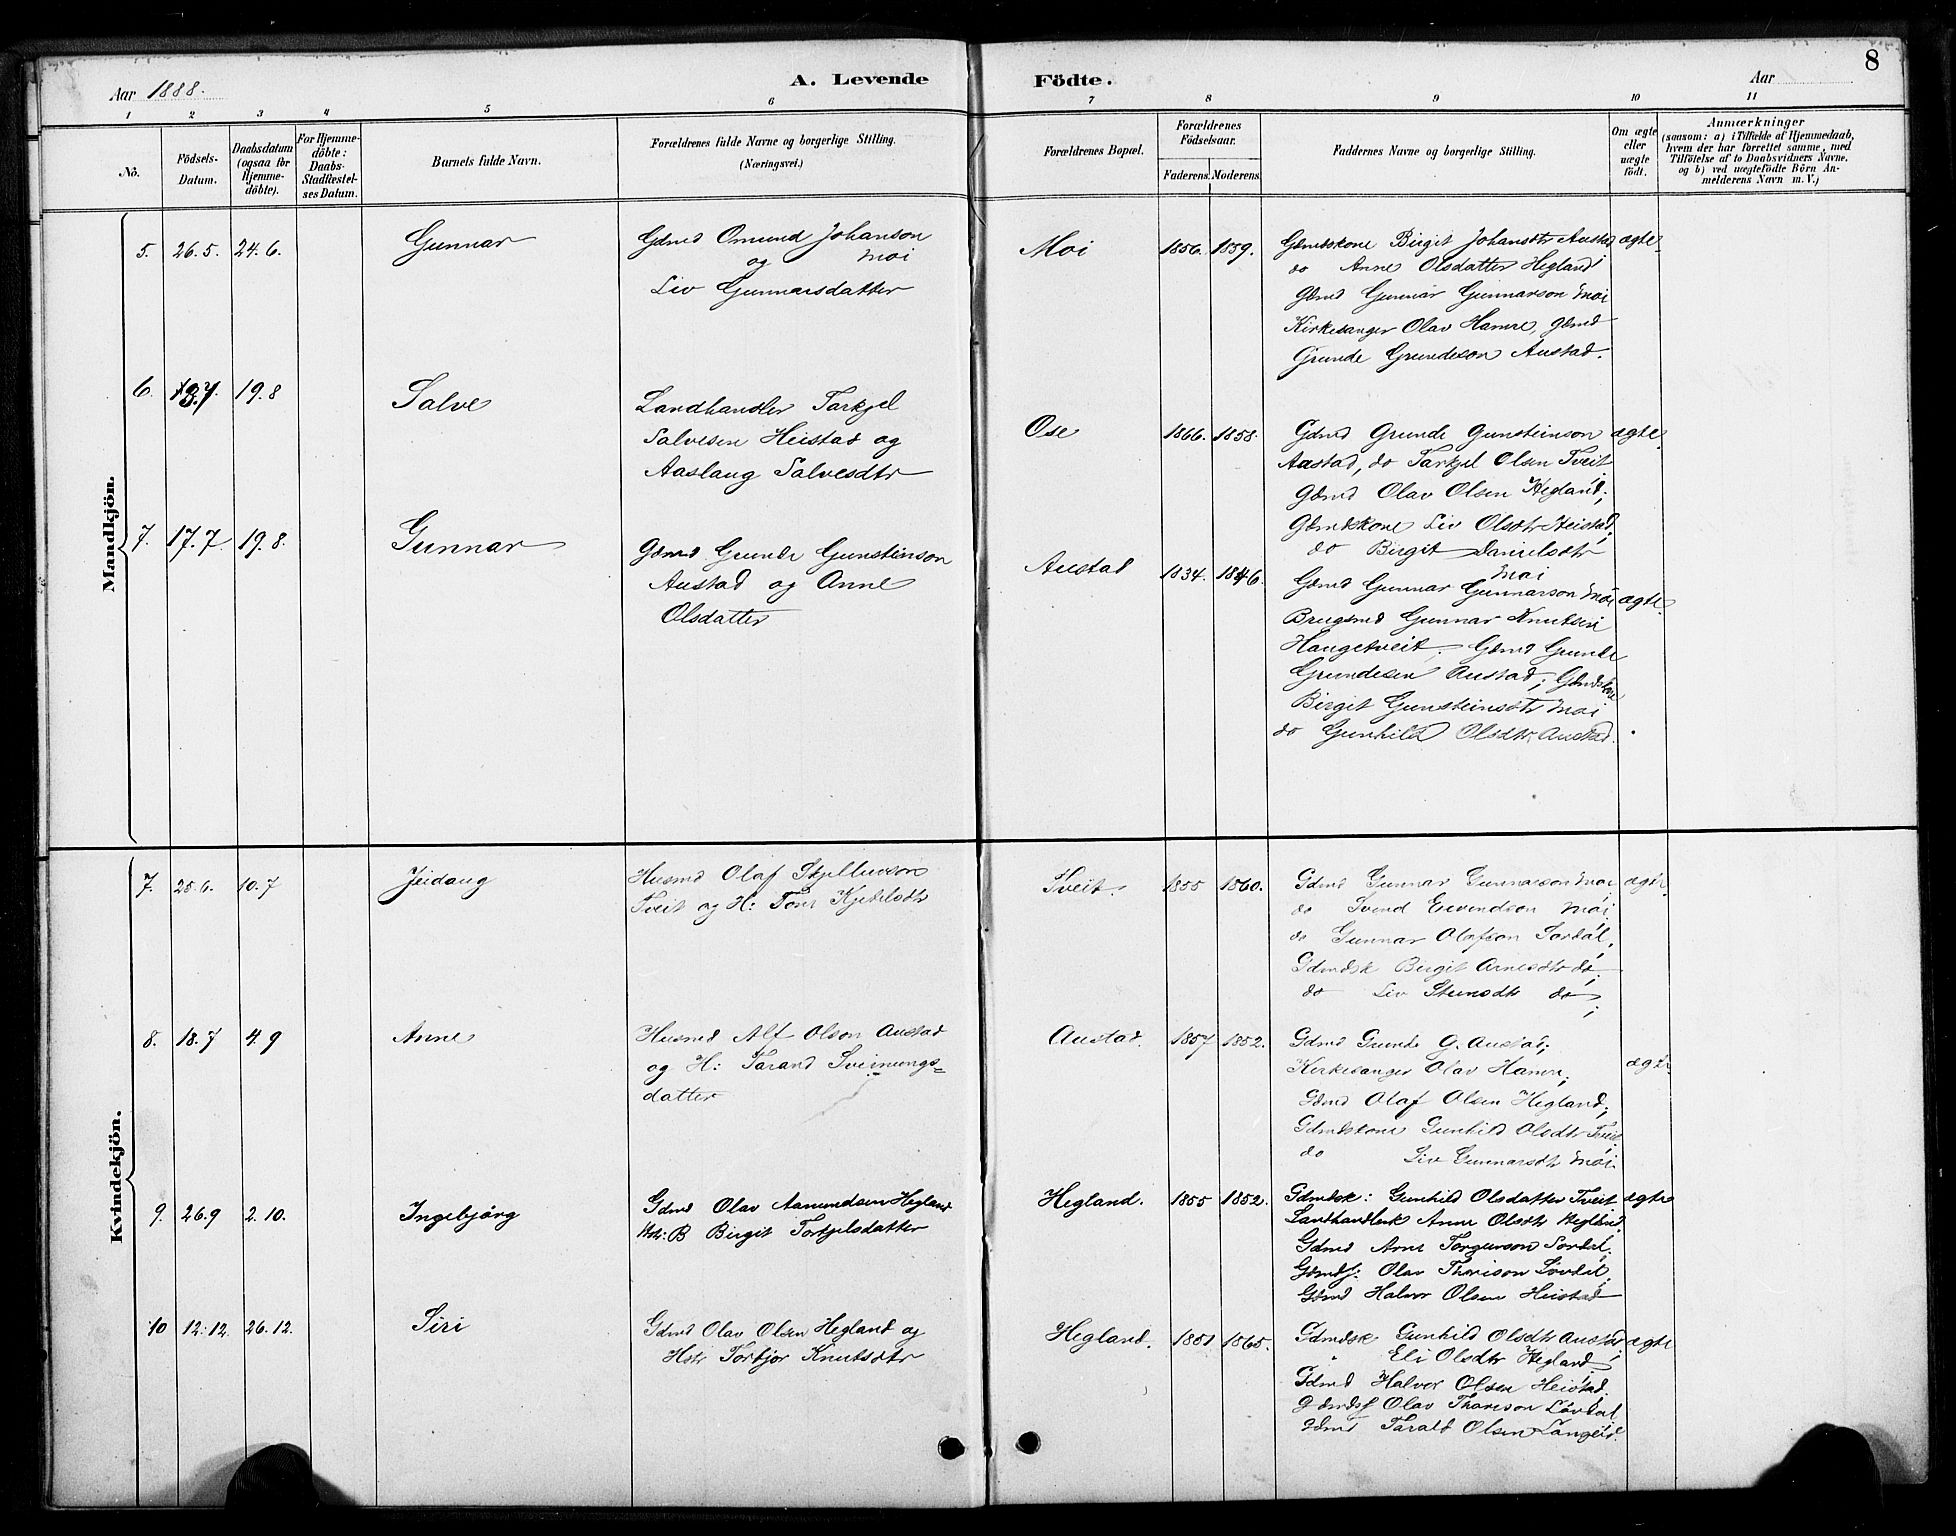 8
Aar 1888.
A. Levende Födte.
Aar
1 2 3 4 5 6 7 8 9 10 11
No.
Födsels-Datum.
Daabsdatum (ogsaa for Hjemme-döbte).
For Hjemme-döbte: Daabs-Stadfæstelses Datum.
Barnets fulde Navn.
Forældrenes fulde Navne og borgerlige Stilling.
(Næringsvei.)
Forældrenes Bopæl.
Forældrenes Födselsaar.
Faderens. Moderens.
Faddernes Navne og borgerlige Stilling.
Om ægte eller uægte födt.
Anmærkninger
(saasom: a) i Tilfælde af Hjemmedaab,
hvem der har forrettet samme, med
Tilföielse af to Daabsvidners Navne,
og b) ved uægtefödte Börn An-
melderens Navn m. V.)
Mandkjön.
5. 26.5. 24.6. Gunnar
Gdmd Omund Johanson
og Moi
Liv Gunnarsdatter
Moi 1856. 1859.
Gdmdskone Birgit Johansdtr Austad ægte
do Anne Olsdatter Hegland
Gdmd Gunnar Gunnarson Moi
Kirkesanger Olav Hamre, Gdmd
Grunde Grundeson Austad.
6. 19.8 Salve
Landhandler Tarkjel
Salvesen Heistad og
Aaslaug Salvesdtr
Ose 1866. 1858.
Gdmd Grunde Gunsteinson ægte
Austad, do Tarkjel Olsen Tveit
Gdmd Olav Olsen Hegland;
Gdmdskone Liv Olsdtr Heistad;
do Birgit Danielsdtr
Moi
7. 17.7. 19.8. Gunnar
Gdmd Grunde Gunsteinson
Austad og Anne
Olsdatter
Austad 1834. 1846.
Gdmd Gunnar Gunnarson Moi ægte
Brugsmd Gunnar Knutsen
Haugetveit. Gdmd Grunde
Grundesen Austad; Gdmdskone
Birgit Gunsteinsdtr Moi
do Gunhild Olsdtr Austad.
Kvindekjön.
7. 25.6. 10.7
Husmd Olaf
Tveit og H: Tone Kjetilsdtr
Tveit. 1855 1860.
Gdmd Gunnar Gunnarson Moi ægte
do Svend Eivindson Moi
do Gunnar Olafson Sordal,
Gdmdsk Birgit Arnesdtr do;
do Liv Steinsdtr do;
8. 18.7 4.9 Anne
Husmd Alf Olson Austad
og H: Tarand Sveinungs-
datter
Austad. 1857 1852.
Gdmd Grunde G. Austad;
Kirkesanger Olav Hamre; ægte
Gdmd Olaf Olsen Hegland;
Gdmdskone Gunhild Olsdtr Tveit
do Liv Gunnarsdtr Moi
9. 26.9 2.10. Ingebjörg
Gdmd Olav Aamundsen Hegland
Birgit Torkjelsdatter
Hegland. 1855 1852.
Gdmdsk: Gunhild Olsdatter Tveit ægte
Landhandlersk Anne Olsdtr Hegland,
Gdmd Arne Torgerson Sordal.
Olav Thorison Lövdal,
Gdmd Halvor Olsen Heistad
10 12.12. 26.12. Siri
Gdmd Olav Olsen Hegland og
Hstr Torbjor Knutsdtr
Hegland. 1851 1865.
Gdmdsk Gunhild Olsdtr Austad, ægte
" Eli Olsdtr Hegland
Gdmd Halvor Olsen Heistad.
Olav Thorison Lövdal
Gdmd Tarald Olsen Langeid.